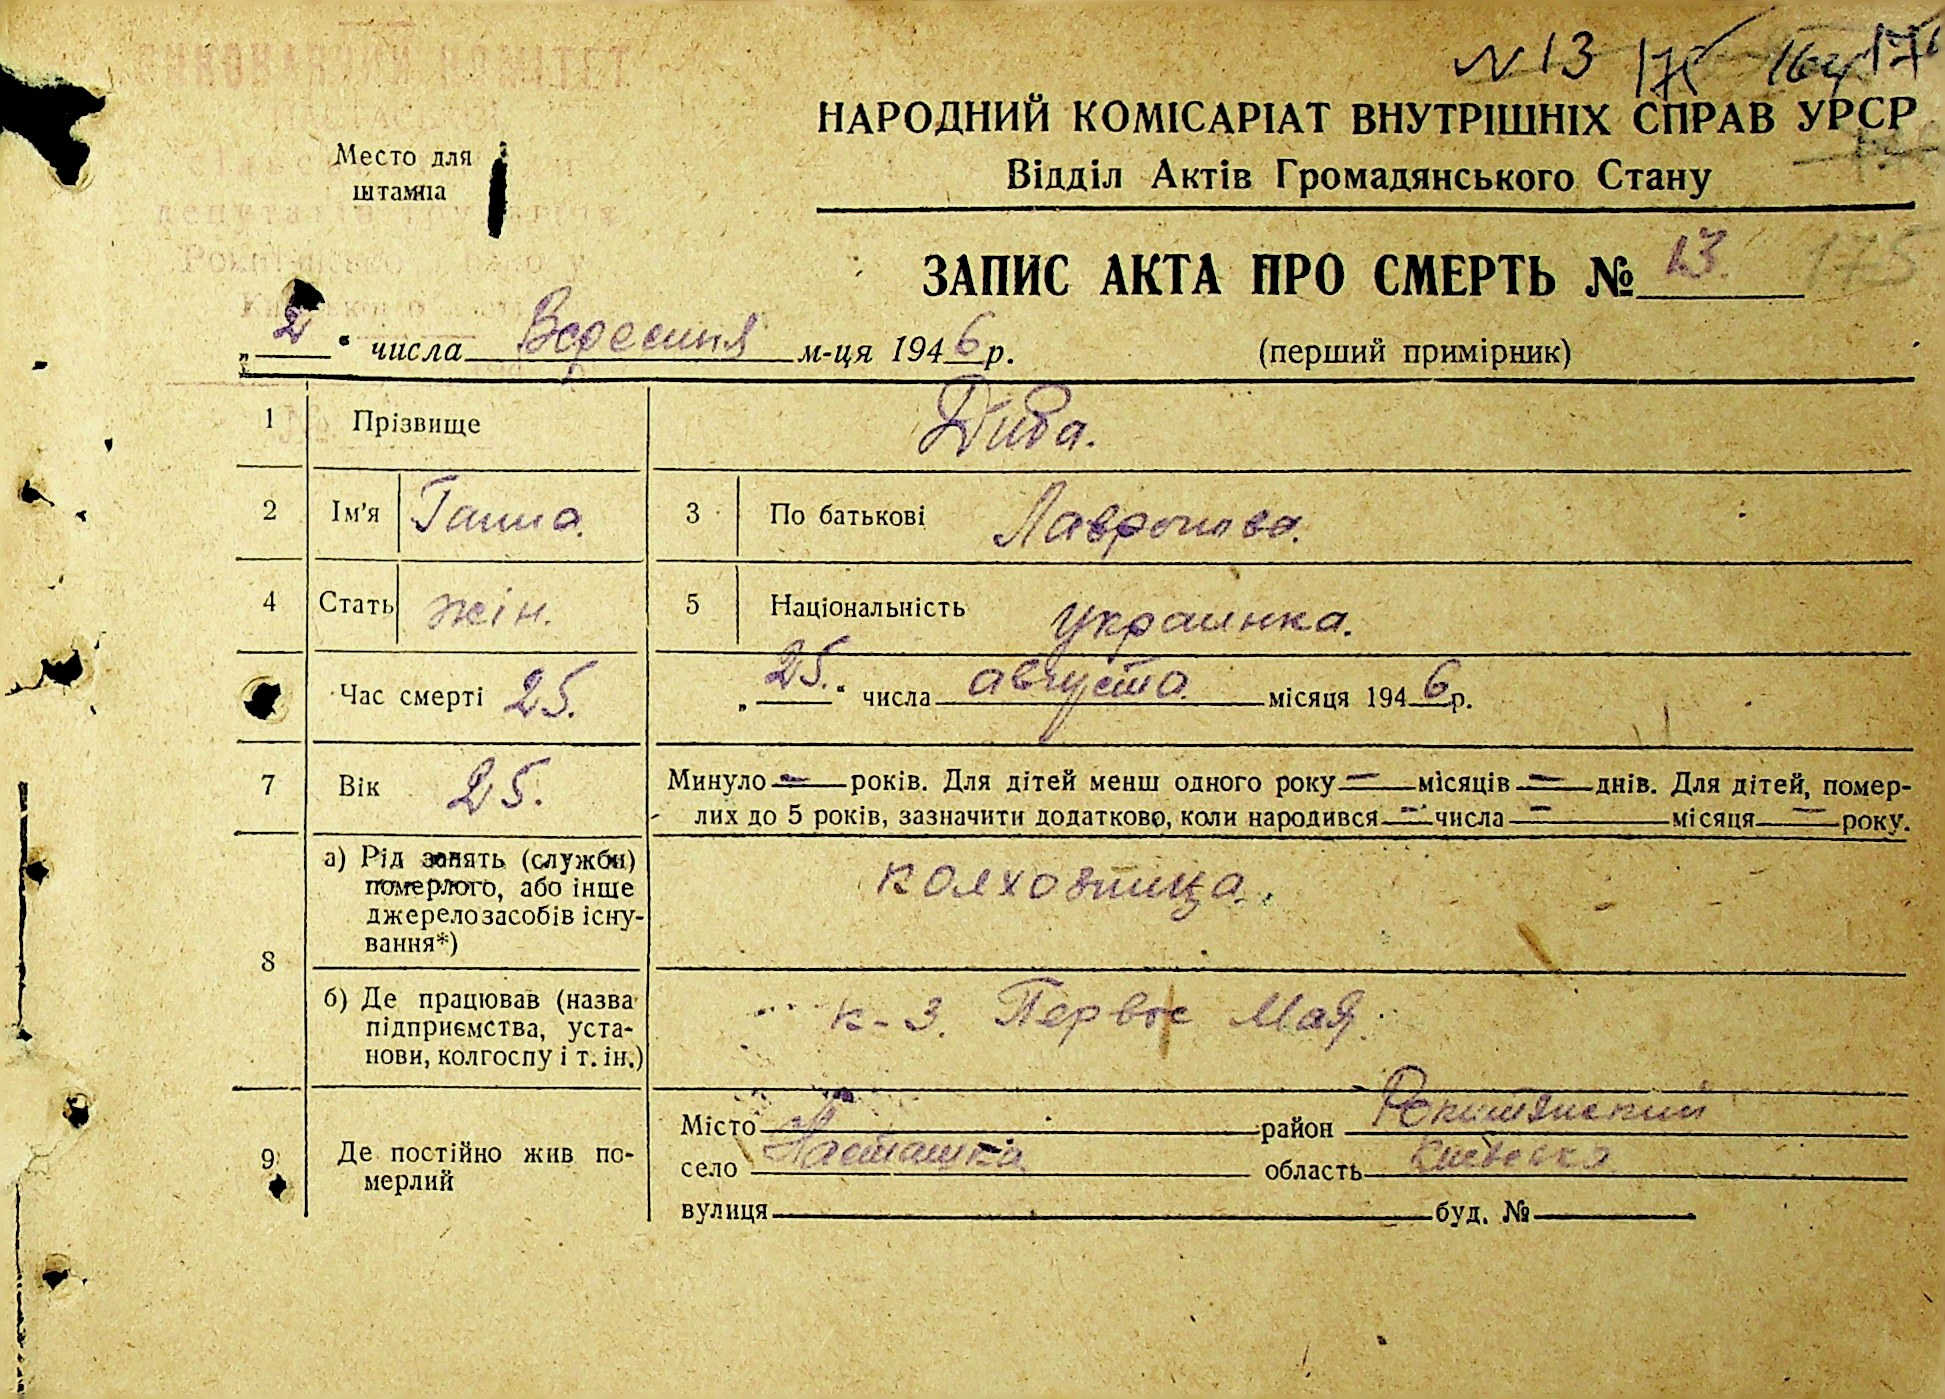 N 13 175 164 176
НАРОДНИЙ КОМІСАРІАТ ВНУТРІШНІХ СПРАВ УРСР
Відділ Актів Громадянського Стану
Место для
штампа
ЗАПИС АКТА ПРО СМЕРТЬ № 13. 175
„ 2 “ числа Вересння м-ця 1946 р. (перший примірник)
1 Прізвище Диба.
2 Ім'я Ганна. 3 По батькові Лавронова.
4 Стать жін. 5 Національність украинка.
Час смерті 25. „ 25. “ числа августа місяця 1946 р.
7 Вік 25. Минуло = років. Для дітей менш одного року = місяців = днів. Для дітей, помер-
лих до 5 років, зазначити додатково, коли народився = числа = місяця = року.
8 а) Рід занять (служби)
померлого, або інше
джерело засобів існу-
вання*)
колхозница.
б) Де працював (назва
підприємства, уста-
нови, колгоспу і т. ін.)
к-з. Первое Мая.
9 Де постійно жив по-
мерлий
Місто район Рокитянский
село Насташка область Киевская
вулиця буд. №